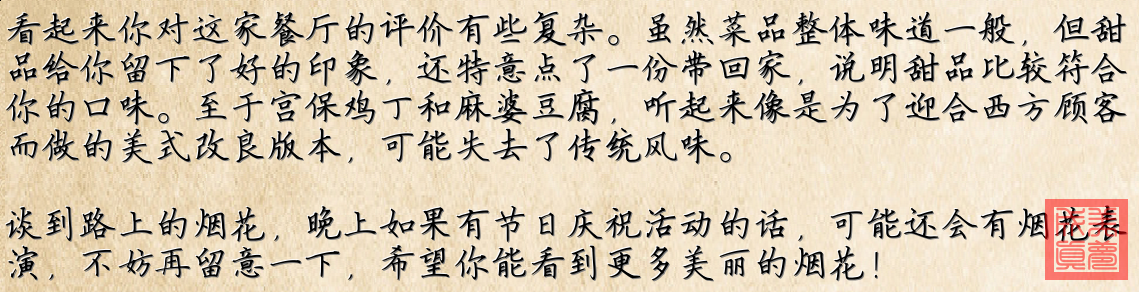 看起来你对这家餐厅的评价有些复杂。虽然菜品整体味道一般，但甜
品给你留下了好的印象，还特意点了一份带回家，说明甜品比较符合
你的口味。至于宫保鸡丁和麻婆豆腐，听起来像是为了迎合西方顾客
而做的美式改良版本，可能失去了传统风味。
谈到路上的烟花，晚上如果有节日庆祝活动的话，可能还会有烟花表
演，不妨再留意一下，希望你能看到更多美丽的烟花！